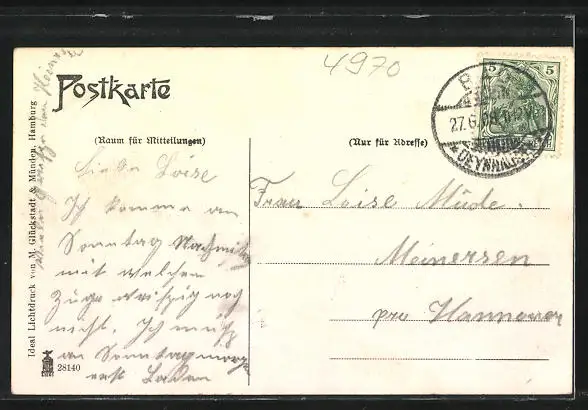 4970
Postkarte
(Raum für Mitteilungen)
(Nur für Adresse)
5 5
27.6.
OEYNHAUSEN
Liebe Loise
Ich komme am
Sonntag Nachmittag
mit welchem
Zuge weiß ich noch
nicht. Ich muß
am Sonntagmorgen
erst Baden
Frau Loise Müde.
Meinersen
pr. Hannover
Ideal Lichtdruck von M. Glückstadt & Münden, Hamburg
28140